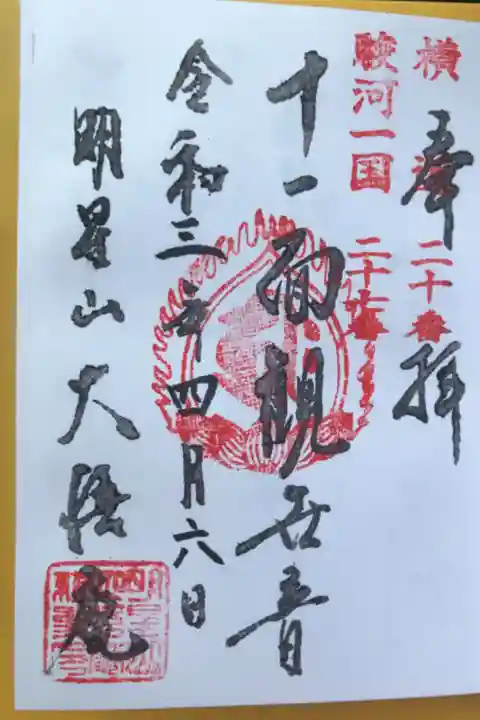 奉拝
横 二十番
駿河一国 二十番
十一面観世音
令和三年四月六日
明星山大悟庵